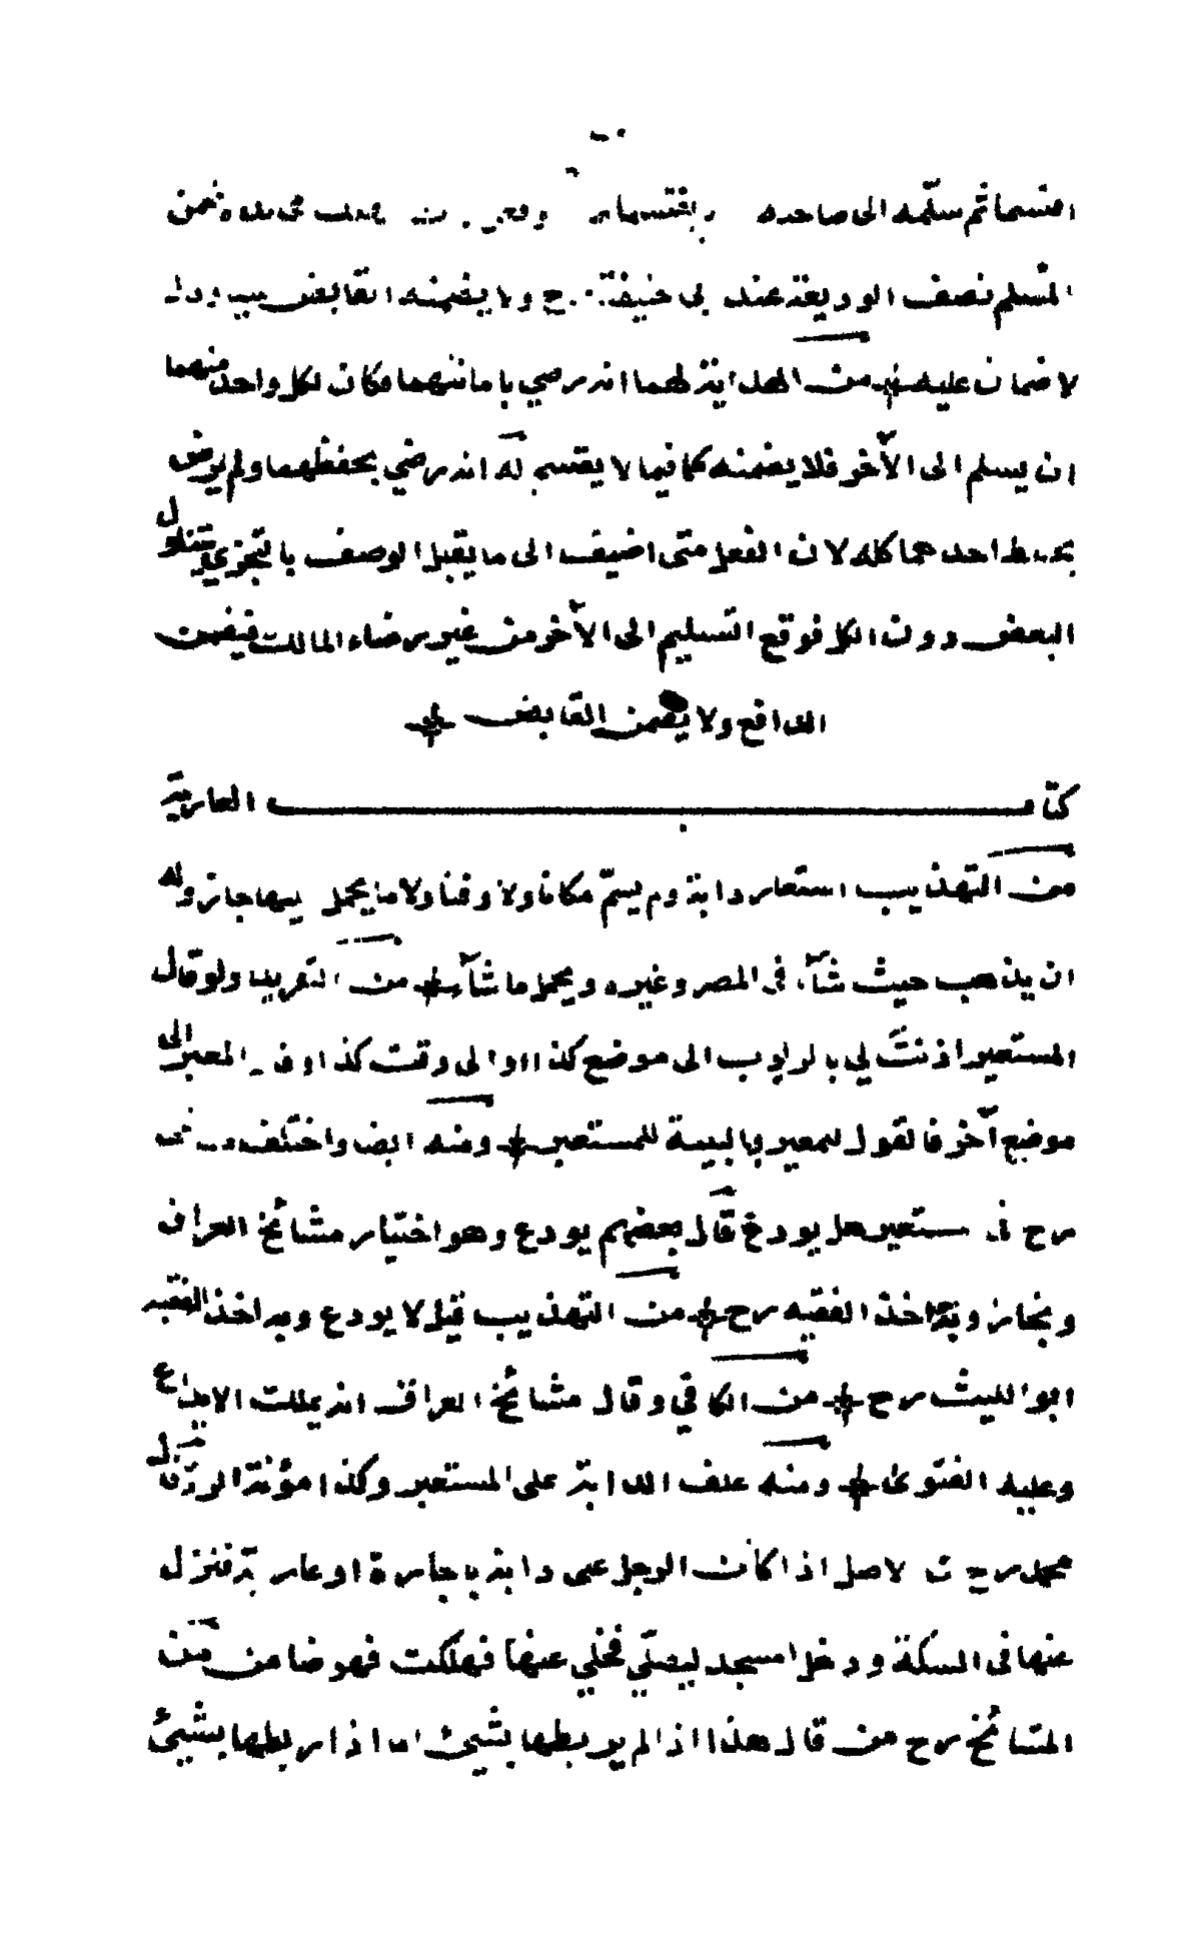 ثم سلّمه الى صاحبه ضمن
المسلم نصف الوديعة عند بى حنيفة ح ولا يضمنه القابض
لا ضمان عليه من لهما انه رضي بامانتهما فكان لكل واحد منهما
ان يسلم الى الآخر فلا يضمنه كما فيما لا يقسم له انه رضي بحفظهما ولم يرض
احدهما كله لان الفعل متى اضيف الى ما يقبل الوصف بالتجزي يتناول
البعض دون الكل فوقع التسليم الى الآخر من غير رضاء المالك فيضمن
الدافع ولا يضمن القابض
كتاب العارية
من التهذيب استعار دابة ولم يسمّ مكانا ولا وقتا ولا ما يحمل عليها جاز وله
ان يذهب حيث شآء فى المصر وغيره ويحمل ما شآء من ولو قال
المستعير اذنت لي بالركوب الى موضع كذا او الى وقت كذا المعير الى
موضع آخر فالقول للمعير والبينة للمستعير ومنه ايضا واختلف
رح فى مستعير هل يودع قال بعضهم يودع وهو اختيار مشائخ العراق
وبخارا وبه اخذ الفقيه رح من التهذيب قيل لا يودع وبه اخذ الفقيه
ابو الليث رح من الكافي وقال مشائخ العراق انه يملك الايداع
وعليه الفتوى ومنه علف الدابة على المستعير وكذا مؤنة الرد قال
محمد رح فى الاصل اذا كان الرجل على دابة باجارة او عارية فنزل
عنها فى السكة ودخل المسجد ليصلّي فخلي عنها فهلكت فهو ضامن من
المشائخ رح من قال هذا اذا لم يربطها بشيئ اما اذا ربطها بشيئ